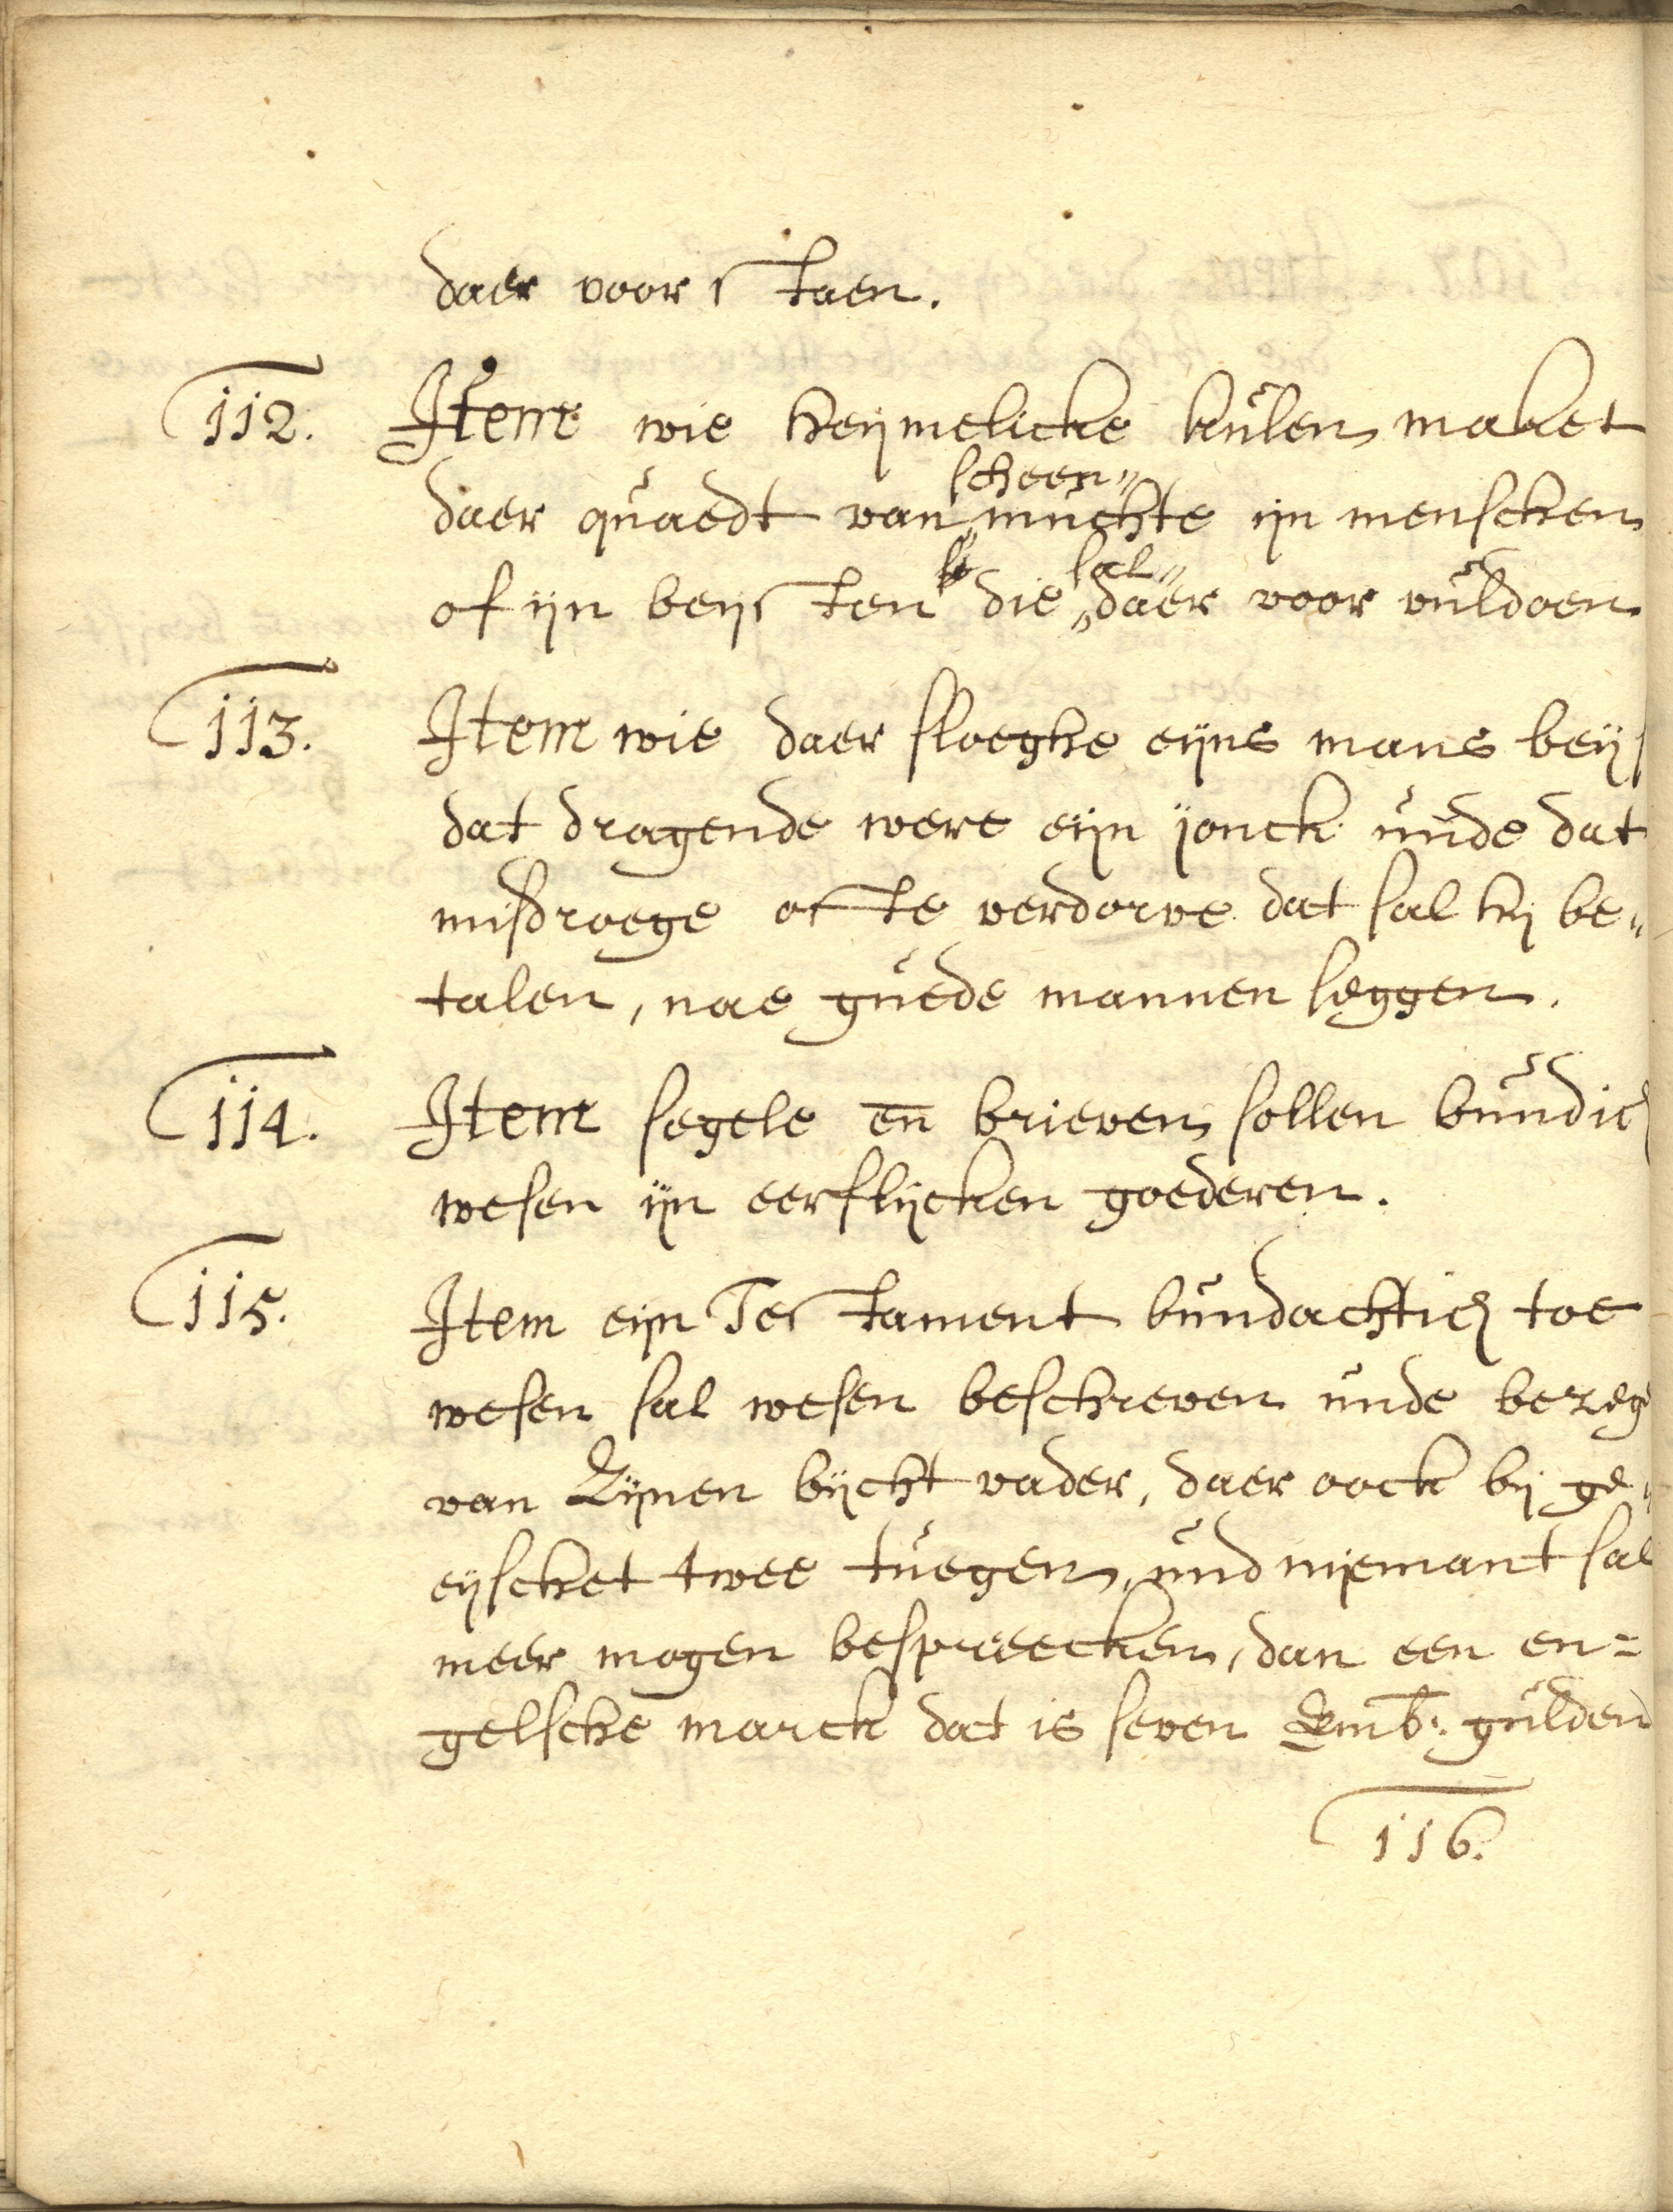 daer voor staen.
112. Item wie heijmelicke kulen maket
scheen"
daer quaedt van muchte ijn menschen
sal"
of ijn beijsten die daer voor vuldoen
113. Item wie daer sloeghe eijns mans beijs
dat dragende were eijn jonck unde dat
misdroege ofte verdorve dat sal hij be"
talen, nae guede mannen seggen.
114. Item segele en̄ brieven sollen bundich
wesen ijn eerflijcken goederen.
115. Item eijn Testament bundachtich toe
wesen sal wesen beschreven unde bezege
van Zijnen bijcht vader, daer oock bij ge"
eijschet twee tuegen, und nijemant sal
meer mogen bespreecken, dan een en=
gelsche marck dat is seven Emb: gulden
116.